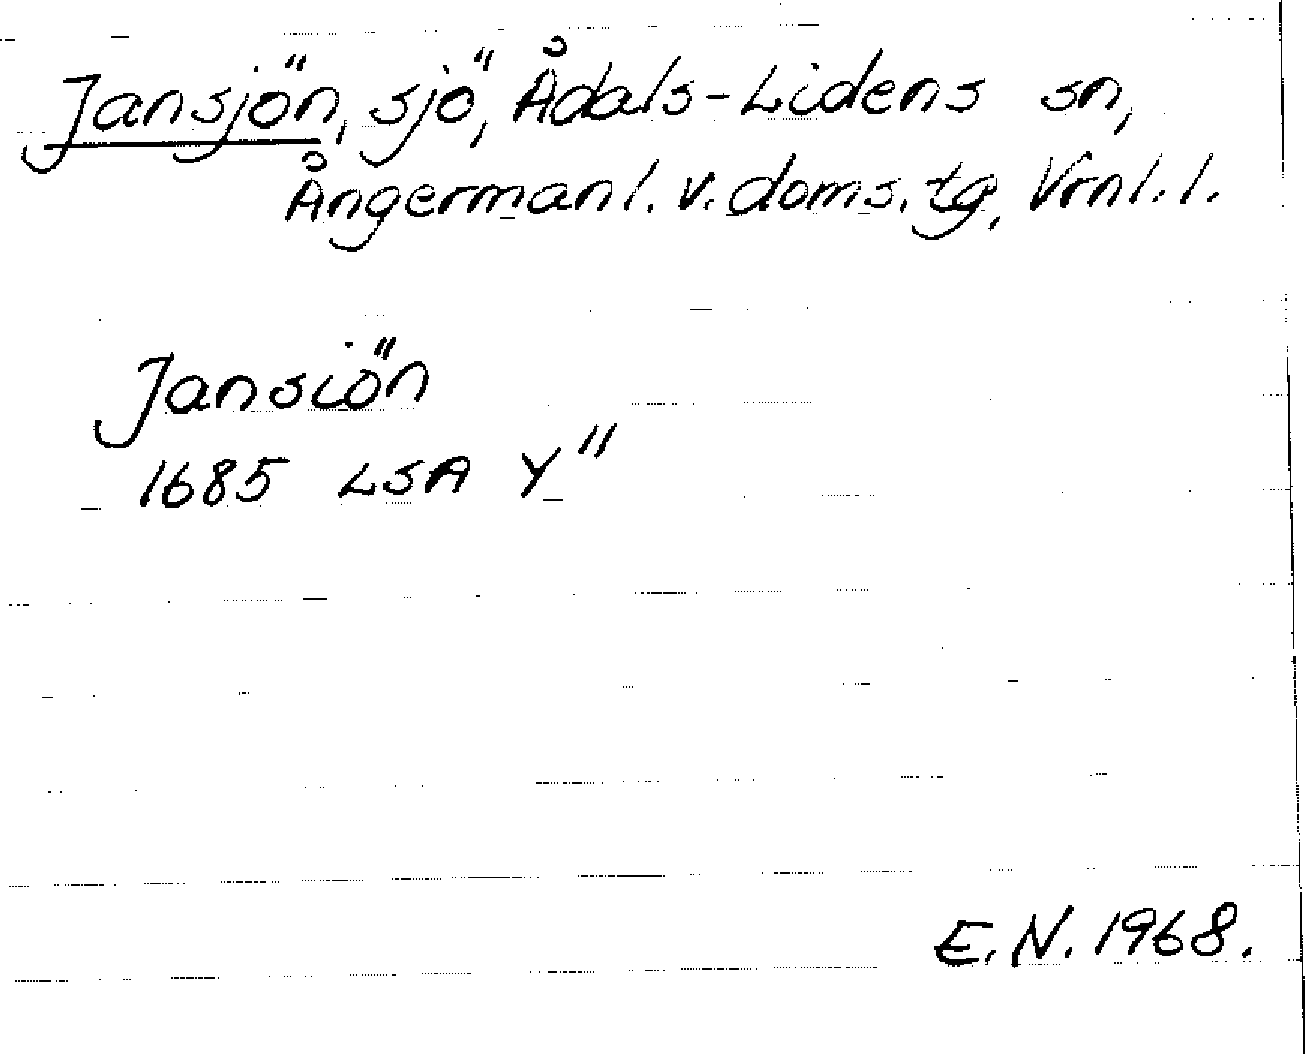 Jansjön, sjö, Ådals-Lidens sn,
Ångermanl. v. doms. tg, Vrnl. l.
Jansiön
1685 LSA Y"
E.N. 1968.